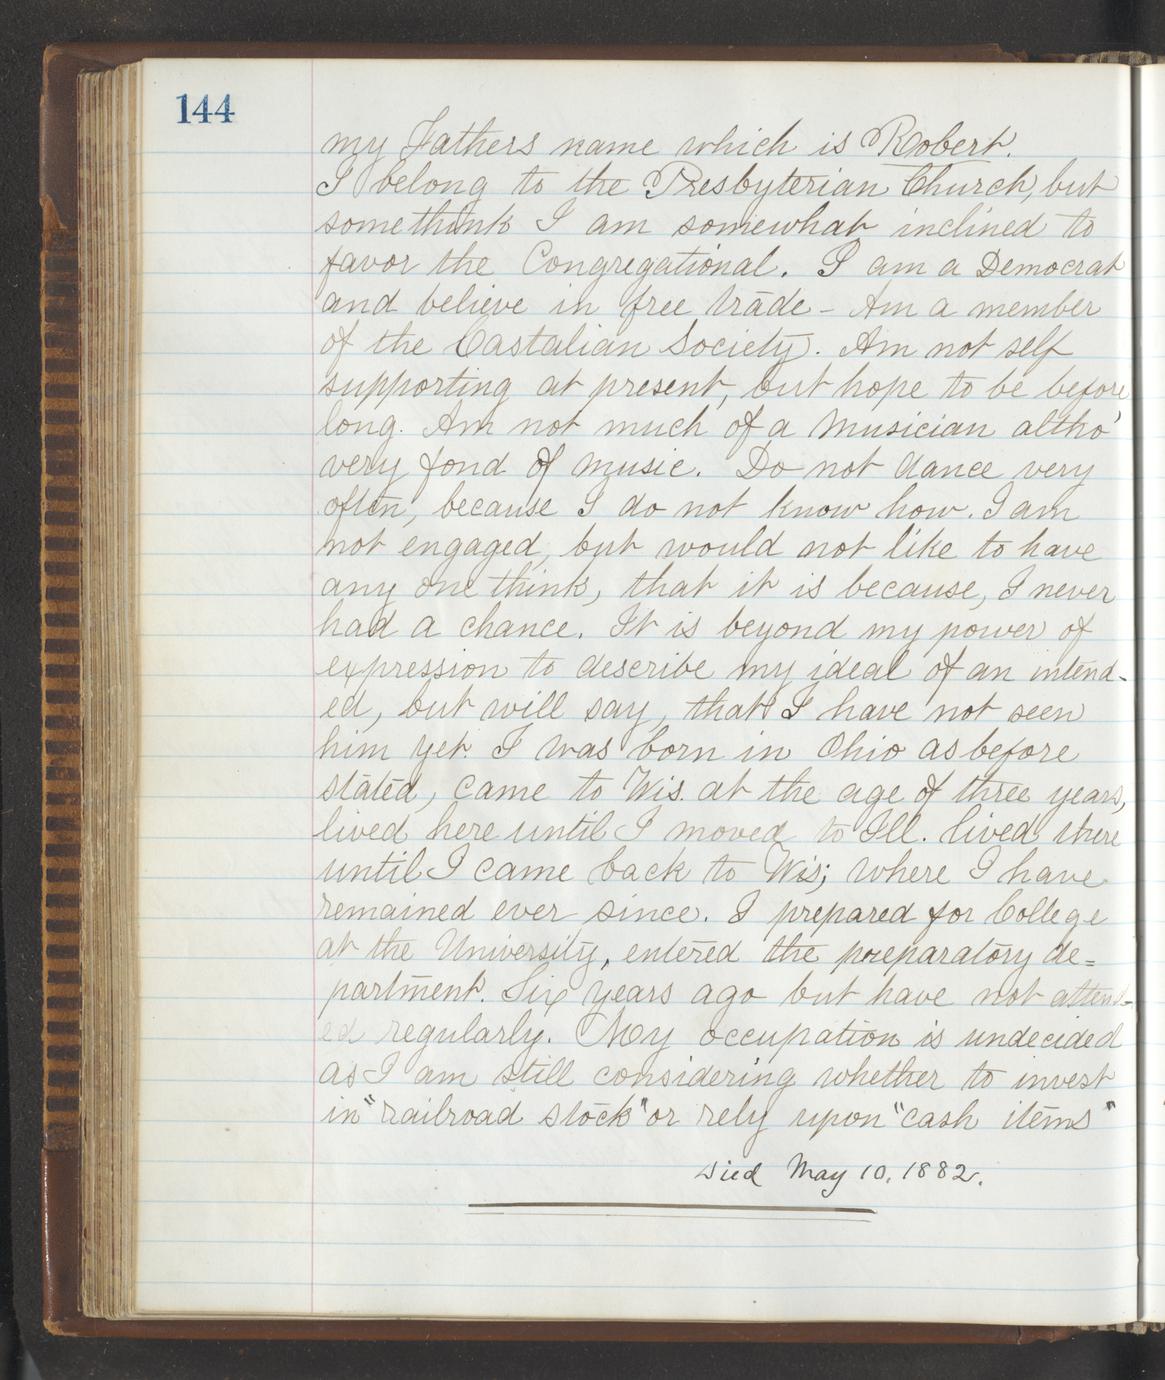 144
my Fathers name which is Robert.
I belong to the Presbyterian Church, but
some think I am somewhat inclined to
favor the Congregational. I am a Democrat
and believe in free trade - Am a member
of the Castalian Society. Am not self
supporting at present, but hope to be before
long. Am not much of a Musician altho'
very fond of music. Do not dance very
often, because I do not know how. I am
not engaged, but would not like to have
any one think, that it is because, I never
had a chance. It is beyond my power of
expression to describe my ideal of an intend-
ed, but will say, that I have not seen
him yet. I was born in Ohio as before
stated, came to Wis. at the age of three years,
lived here until I moved to Ill. lived there
until I came back to Wis; where I have
remained ever since. I prepared for College
at the University, entered the preparatory de=
partment. Six years ago but have not attend-
ed regularly. My occupation is undecided
as I am still considering whether to invest
in "railroad stock" or rely upon "cash items"
Died May 10, 1882.